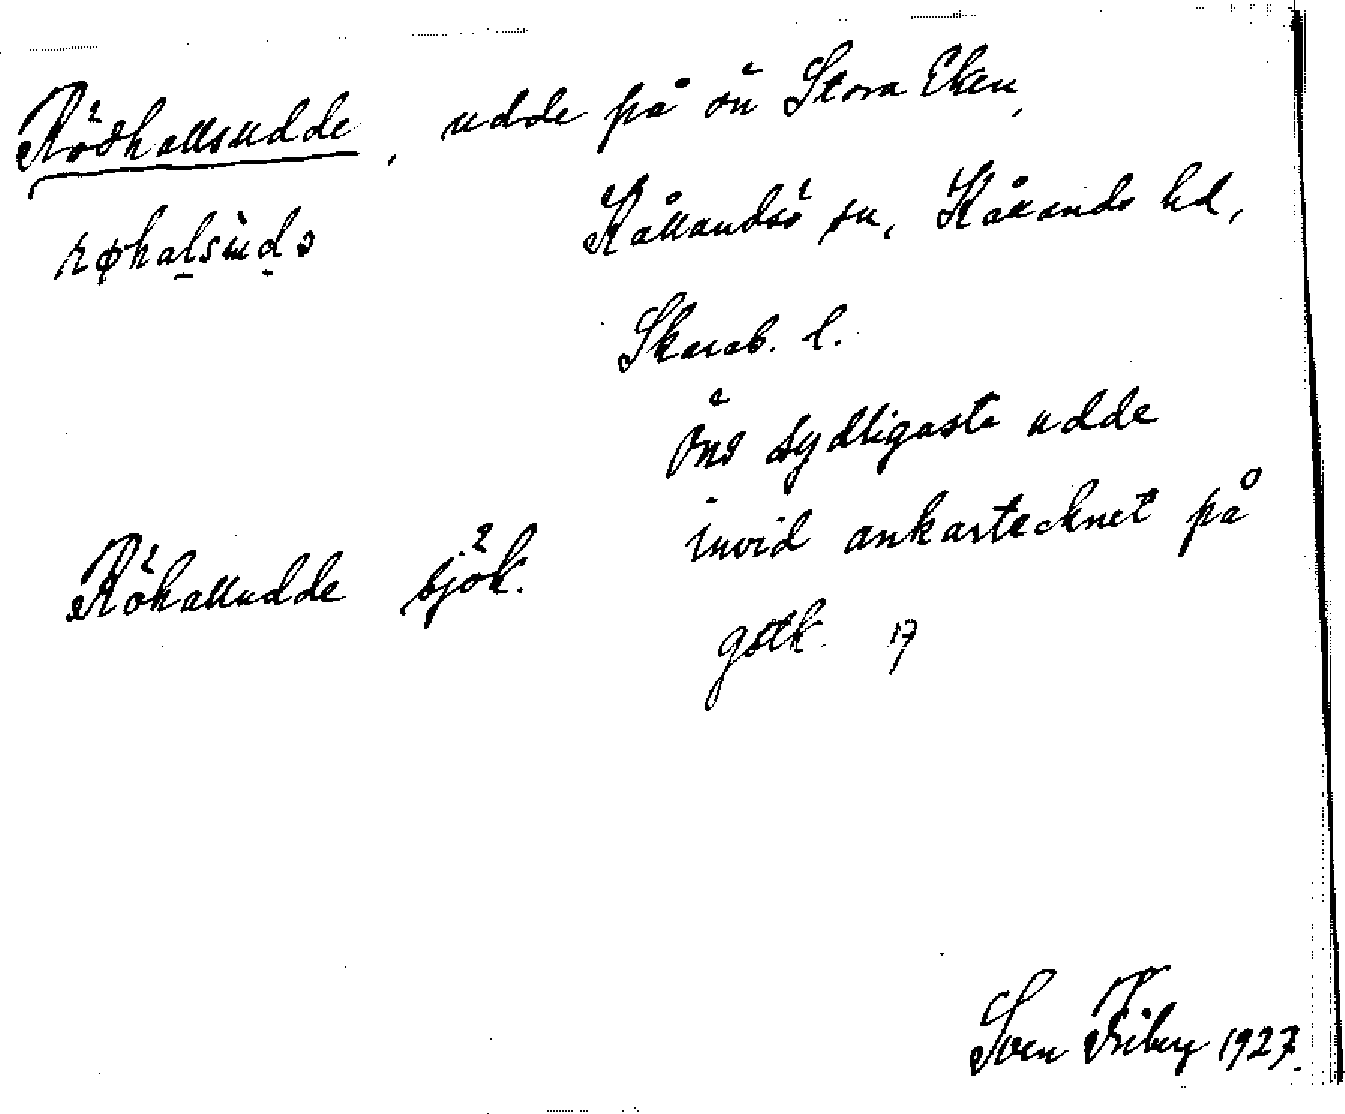 Rödhallsudde, udde på ön Stora Eken,
Kållandsö sn, Kållands hd,
røhalsùdə
Skarab. l.
Öns sydligaste udde
invid ankartecknet på
Röhalludde sjök.
gstk. 17
Sven Friberg 1927.